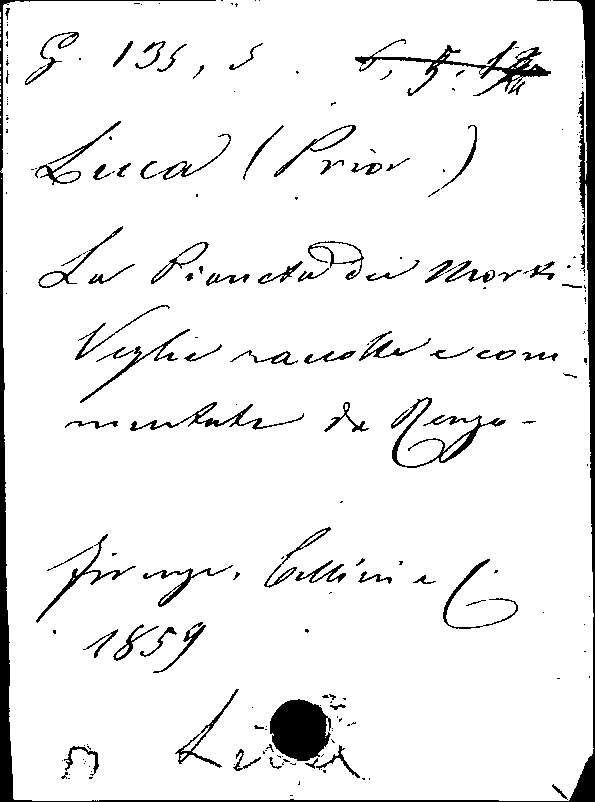 G. 135, 5. 6, 5.
Luca (Prior)
La Pianeta dei Morti
Veglie raccolte e com
mentate da Renzo -
Firenze. Cellini e C.
1859